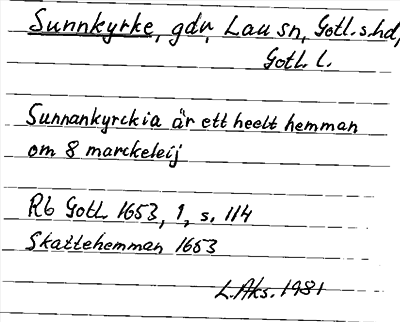 Sunnkyrke, gdr, Lau sn, Gotl.s.hd,
Gotl. l.
Sunnankyrckia är ett heelt hemman
om 8 marckeleij
Rb Gotl. 1653, 1, s. 114
Skattehemman 1653
L.Aks. 1981